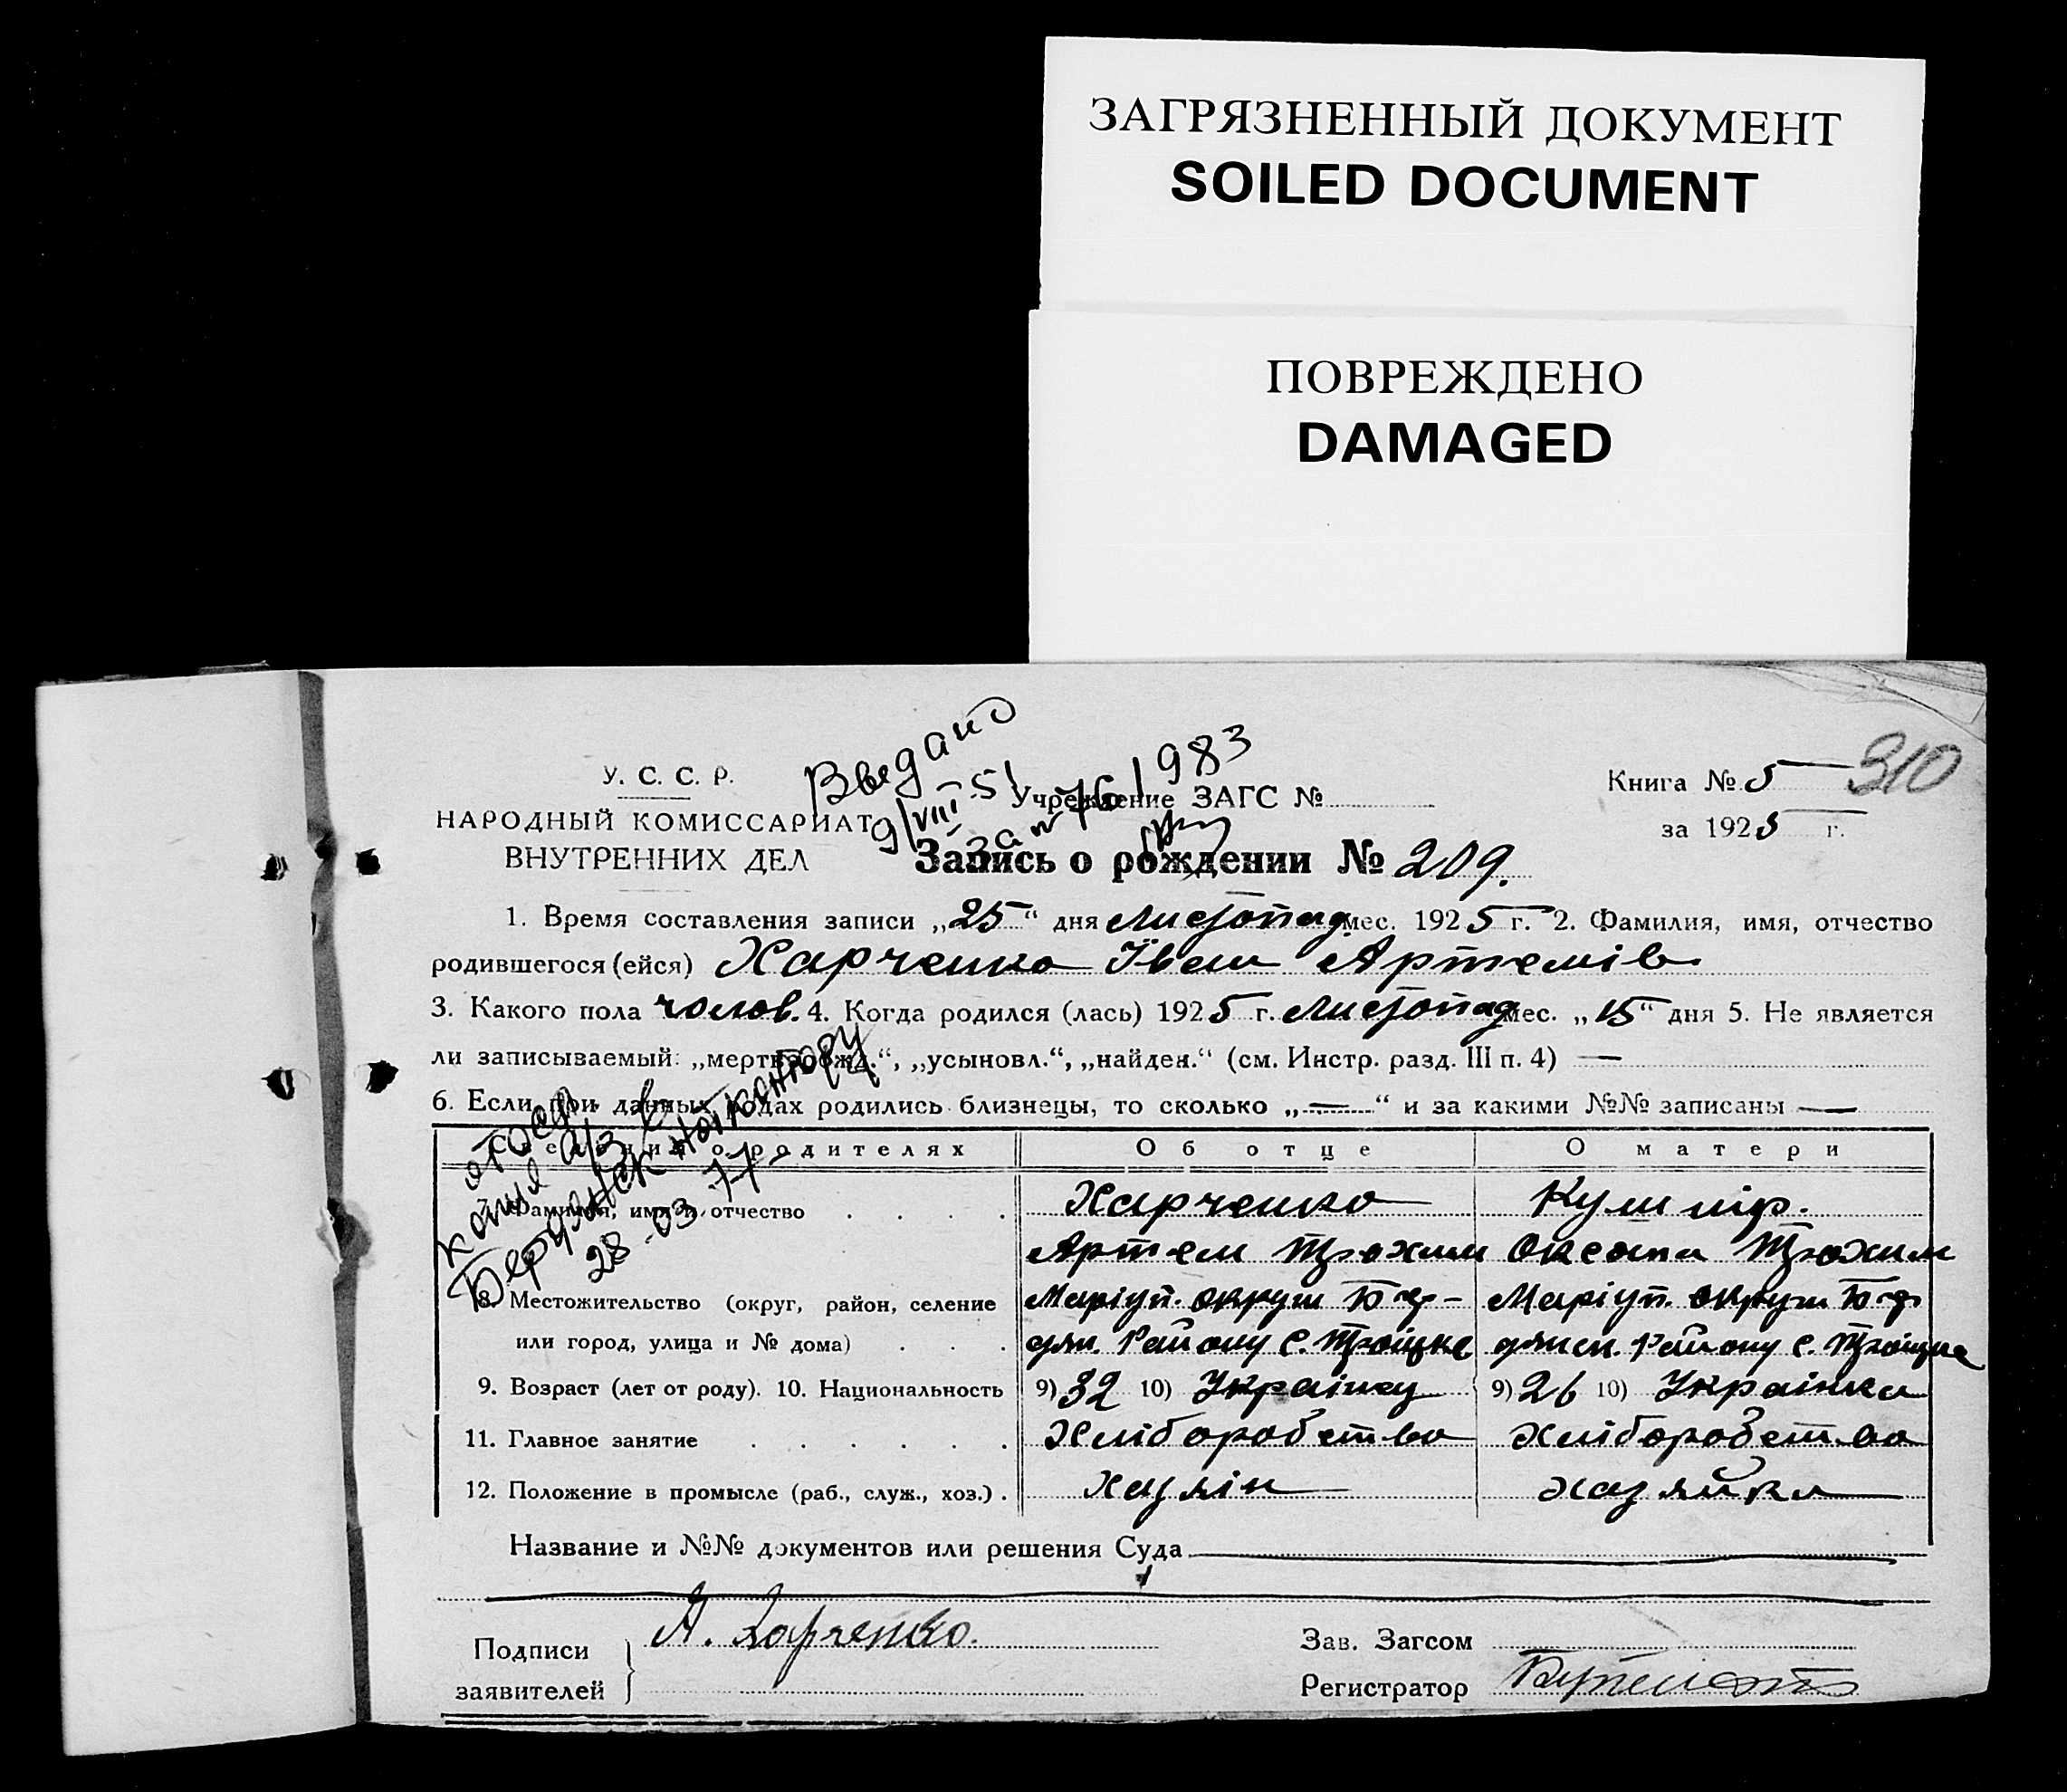 ЗАГРЯЗНЕННЫЙ ДОКУМЕНТ
SOILED DOCUMENT
ПОВРЕЖДЕНО
DAMAGED
310
У. С. С. Р.
НАРОДНЫЙ КОМИССАРИАТ
ВНУТРЕННИХ ДЕЛ
Выдано
9/VIII-51
за № 76/983
Учреждение ЗАГС №
Книга № 5
за 1925 г.
Запись о рождении № 209.
1. Время составления записи „25“ дня Листопад мес. 1925 г. 2. Фамилия, имя, отчество
родившегося (ейся) Харченко Їван Артемів
3. Какого пола чолов. 4. Когда родился (лась) 1925 г. Листопад мес. „15“ дня 5. Не является
ли записываемый: „мертворожд.“, „усыновл.“, „найден.“ (см. Инстр. разд. III п. 4) —
6. Если при данных родах родились близнецы, то сколько „—“ и за какими №№ записаны —
копия а/з в
Бердянск нотконтору
28-03-77
Сведения о родителях Об отце О матери
7. Фамилия, имя и отчество Харченко Кушнір.
Артем Трохим Оксана Трохим
8. Местожительство (округ, район, селение Маріуп. округи Бер- Маріуп. округи Бер
или город, улица и № дома) дян. Району с. Троїцке дянск. Району с. Троїцке
9. Возраст (лет от роду). 10. Национальность 9) 32 10) Українец 9) 26 10) Українка
11. Главное занятие Хліборобство Хліборобство
12. Положение в промысле (раб., служ., хоз.) хазяін хазяйка
Название и №№ документов или решения Суда
Подписи заявителей А. Харченко.
Зав. Загсом
Регистратор